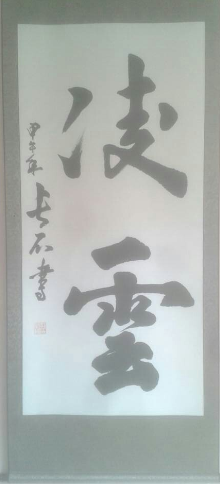 凌雲
甲午年
去石書